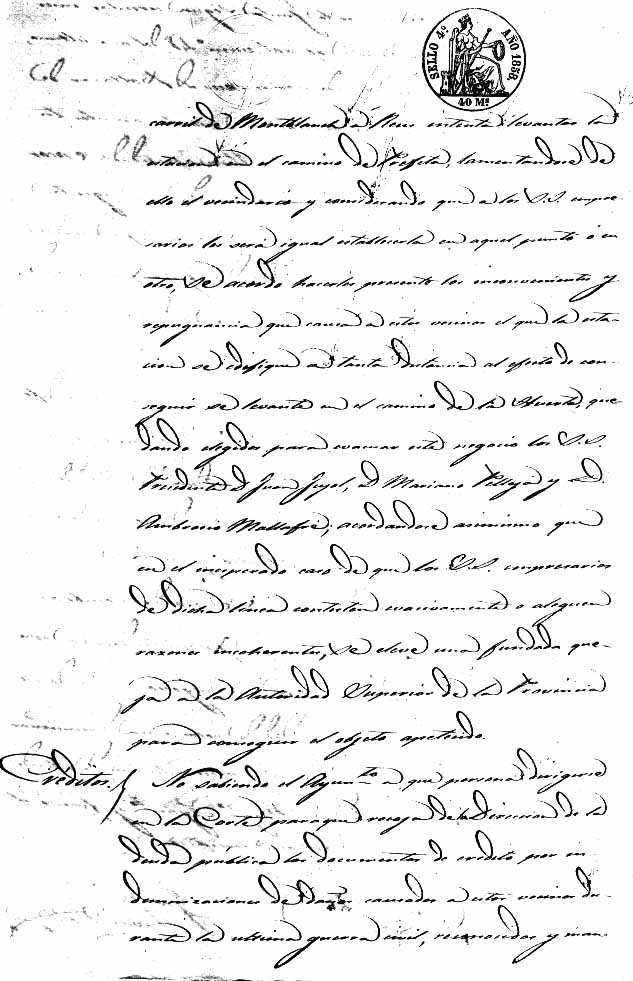 SELLO 4º. AÑO 1858.
40 Ms.
carril de Montblanch a Reus intenta levantar la
estacion en el camino de Prafita, lamentandose de
ello el vecindario y considerando que a los S.S. empre-
sarios les será igual establecerla en aquel punto ó en
otro, se acordó hacerles presente los inconvenientes y
repugnancia que causa a estos vecinos el que la esta-
cion se edifique a tanta distancia al efecto de con-
seguir se levante en el camino de la Huerta, que-
dando elegidos para evacuar este negocio los S.S.
Presidente D. Juan Pujol, D. Mariano Pellejá y D.
Ambrosio Mallafré; acordandose asimismo que
en el inesperado caso de que los S.S. empresarios
de dicha linea contesten evasivamente o aleguen
razones incoherentes, se eleve una fundada que-
ja a la Autoridad Superior de la Provincia
para conseguir el objeto apetecido.
Créditos. No sabiendo el Ayunto. a que persona dirigirse
en la Corte para que recoja de la Direccion de la
deuda pública los documentos de credito por in
demnizaciones de daños causados a estos vecinos du-
rante la ultima guerra civil, reconocidos y man-